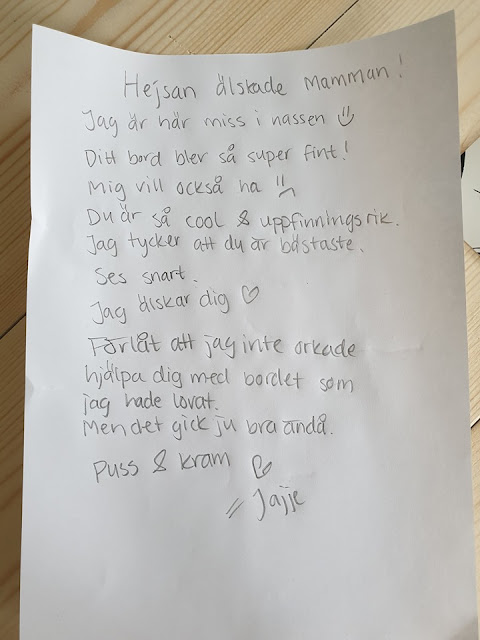 Hejsan älskade Mamman!
Jag är här miss i nassen
Ditt bord blev så super fint!
Mig vill också ha
Du är så cool & uppfinningsrik.
Jag tycker att du är bästaste.
Ses snart.
Jag älskar dig ♡
Förlåt att jag inte orkade
hjälpa dig med bordet som
jag hade lovat.
Men det gick ju bra ändå.
Puss & kram ♡
// Jajje